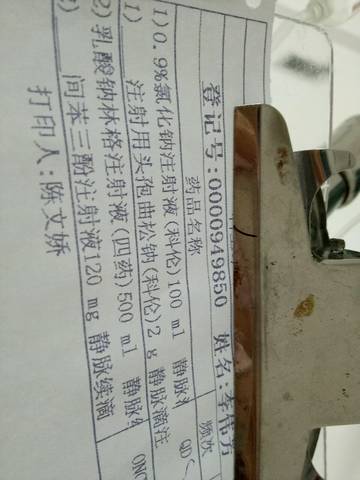 登记号:0000949850 姓名:李伟芳
药品名称 频次
1)0.9%氯化钠注射液(科伦)100 ml 静脉
1) 注射用头孢曲松钠(科伦)2 g 静脉滴注 QD
2)乳酸钠林格注射液(四药)500 ml 静脉续
3) 间苯三酚注射液120 mg 静脉续滴 ONC
打印人:陈文娇